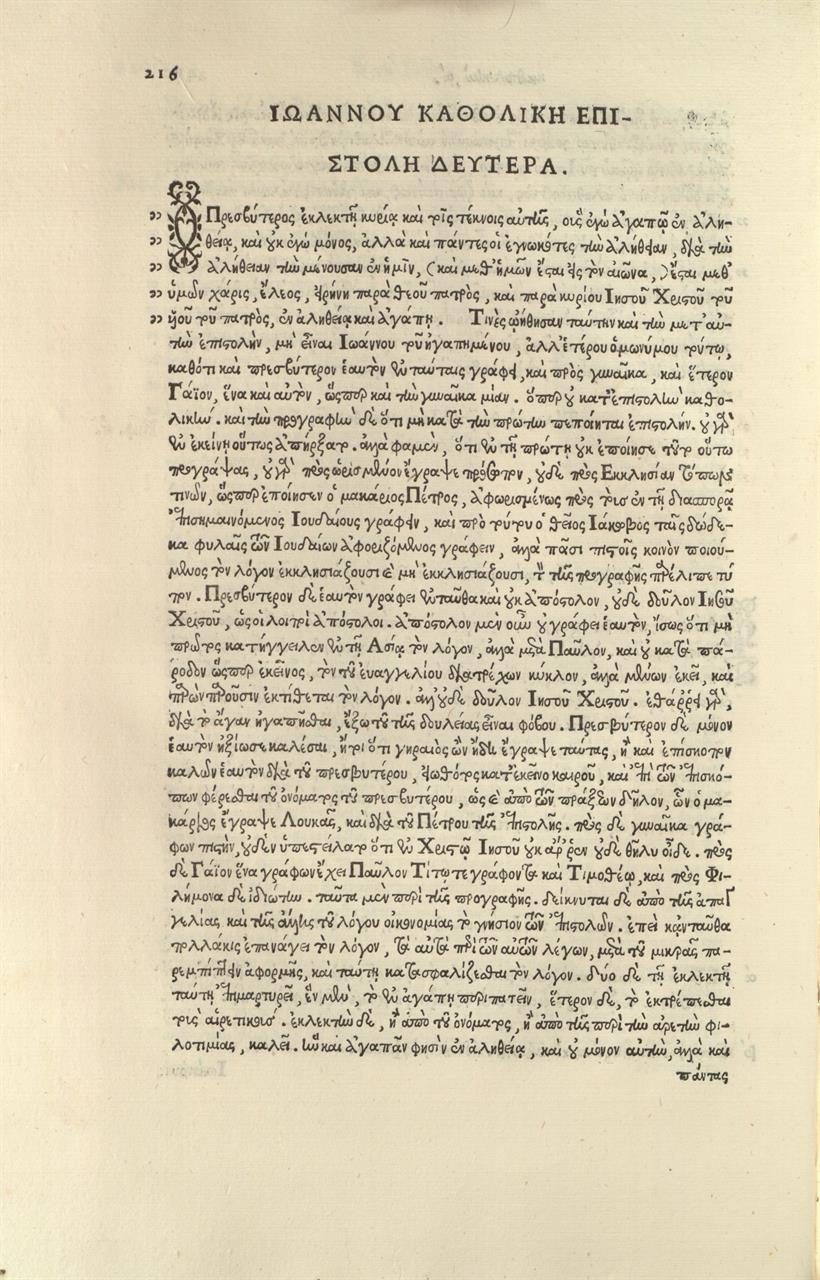 216
ΙΩΑΝΝΟΥ ΚΑΘΟΛΙΚΗ ΕΠΙ-
ΣΤΟΛΗ ΔΕΥΤΕΡΑ.
„ Ὁ Πρεσβύτερος ἐκλεκτῇ κυρίᾳ καὶ τοῖς τέκνοις αὐτῆς, οὓς ἐγὼ ἀγαπῶ ἐν ἀλη-
„ θείᾳ, καὶ οὐκ ἐγὼ μόνος, ἀλλὰ καὶ πάντες οἱ ἐγνωκότες τὴν ἀλήθειαν, διὰ τὴν
„ ἀλήθειαν τὴν μένουσαν ἐν ἡμῖν, (καὶ μεθ' ἡμῶν ἔσται εἰς τὸν αἰῶνα,) ἔσται μεθ'
„ ὑμῶν χάρις, ἔλεος, εἰρήνη παρὰ θεοῦ πατρὸς, καὶ παρὰ κυρίου Ἰησοῦ Χριστοῦ τοῦ
„ υἱοῦ τοῦ πατρὸς, ἐν ἀληθείᾳ καὶ ἀγάπῃ. Τινὲς ᾠήθησαν ταύτην καὶ τὴν μετ' αὐ-
τὴν ἐπιστολὴν, μὴ εἶναι Ἰωάννου τοῦ ἠγαπημένου, ἀλλ' ἑτέρου ὁμωνύμου τούτῳ,
καθότι καὶ πρεσβύτερον ἑαυτὸν ἐν ταύταις γράφει, καὶ πρὸς γυναῖκα, καὶ ἕτερον
Γάϊον, ἕνα καὶ αὐτὸν, ὥσπερ καὶ τὴν γυναῖκα μίαν. ὅπερ οὐ κατ' ἐπιστολὴν καθο-
λικήν. καὶ τὴν προγραφὴν δὲ ὅτι μὴ κατὰ τὴν πρώτην πεποίηται ἐπιστολήν. οὐ γὰρ
ἐν ἐκείνῃ οὕτως ἀπήρξατο. ἀλλά φαμεν, ὅτι ἐν τῇ πρώτῃ οὐκ ἐποίησε τοῦτο οὕτω
προγράψας, οὐ γὰρ πρὸς ὡρισμένον ἔγραψε πρόσωπον, οὐδὲ πρὸς Ἐκκλησίαν
τινῶν, ὥσπερ ἐποίησεν ὁ μακάριος Πέτρος, ἀφωρισμένως πρὸς τοὺς ἐν τῇ διασπορᾷ
ἐπισημαινόμενος Ἰουδαίους γράφειν, καὶ πρὸ τούτου ὁ θεῖος Ἰάκωβος ταῖς δώδε-
κα φυλαῖς τῶν Ἰουδαίων ἀφοριζόμενος γράφειν, ἀλλὰ πᾶσι πιστοῖς κοινὸν ποιού-
μενος τὸν λόγον ἐκκλησιάζουσι καὶ μὴ ἐκκλησιάζουσι, τὸ τῆς προγραφῆς παρέλιπε τύ-
πον. Πρεσβύτερον δὲ ἑαυτὸν γράφει ἐνταῦθα καὶ οὐκ ἀπόστολον, οὐδὲ δοῦλον Ἰησοῦ
Χριστοῦ, ὡς οἱ λοιποὶ ἀπόστολοι. ἀπόστολον μὲν οὖν οὐ γράφει ἑαυτὸν, ἴσως ὅτι μὴ
πρῶτος κατήγγειλεν ἐν τῇ Ἀσίᾳ τὸν λόγον, ἀλλὰ μετὰ Παῦλον, καὶ οὐ κατὰ πά-
ροδον ὥσπερ ἐκεῖνος, τὸν τοῦ εὐαγγελίου διατρέχων κύκλον, ἀλλὰ μένων ἐκεῖ, καὶ
παρὼν παροῦσιν ἐκτίθεται τὸν λόγον. ἀλλ' οὐδὲ δοῦλον Ἰησοῦ Χριστοῦ. ἐθάῤῥει γὰρ,
διὰ τὸ ἄγαν ἠγαπῆσθαι, ἔξω τοῦ τῆς δουλείας εἶναι φόβου. Πρεσβύτερον δὲ μόνον
ἑαυτὸν ἠξίωσε καλέσαι, ἤτοι ὅτι γηραιὸς ὢν ἤδη ἔγραψε ταύτας, ἢ καὶ ἐπίσκοπον
καλῶν ἑαυτὸν διὰ τοῦ πρεσβυτέρου, εἰωθότος κατ' ἐκεῖνο καιροῦ, καὶ ἐπὶ τῶν ἐπισκό-
πων φέρεσθαι τοῦ ὀνόματος τοῦ πρεσβυτέρου, ὡς καὶ ἀπὸ τῶν πράξεων δῆλον, ὧν ὁ μα-
κάριος ἔγραψε Λουκᾶς, καὶ διὰ τοῦ Πέτρου τῆς ἐπιστολῆς. πρὸς δὲ γυναῖκα γρά-
φων πιστὴν, οὐδὲν ὑπεστείλατο ὅτι ἐν Χριστῷ Ἰησοῦ οὐκ ἄῤῥεν οὐδὲ θῆλυ οἶδε. πρὸς
δὲ Γάϊον ἕνα γράφων ἔχει Παῦλον Τίτῳ τε γράφοντα καὶ Τιμοθέῳ, καὶ πρὸς Φι-
λήμονα δὲ ἰδιώτην. ταῦτα μὲν περὶ τῆς προγραφῆς. δείκνυται δὲ ἀπὸ τῆς ἀπαγ-
γελίας καὶ τῆς ἄλλης τοῦ λόγου οἰκονομίας τὸ γνήσιον τῶν ἐπιστολῶν. ἐπεὶ κἀνταῦθα
πολλάκις ἐπανάγει τὸν λόγον, τὰ αὐτὰ περὶ τῶν αὐτῶν λέγων, μετὰ τοῦ μικρᾶς πα-
ρεμπίπτειν ἀφορμῆς, καὶ ταύτῃ κατασφαλίζεσθαι τὸν λόγον. δύο δὲ τῇ ἐκλεκτῇ
ταύτῃ ἐπιμαρτυρεῖ, ἓν μὲν, τὸ ἐν ἀγάπῃ περιπατεῖν, ἕτερον δὲ, τὸ ἐκτρέπεσθαι
τοὺς αἱρετικούς. ἐκλεκτὴν δὲ, ἢ ἀπὸ τοῦ ὀνόματος, ἢ ἀπὸ τῆς περὶ τὴν ἀρετὴν φι-
λοτιμίας, καλεῖ. ἣν καὶ ἀγαπᾶν φησὶν ἐν ἀληθείᾳ, καὶ οὐ μόνον αὐτὴν, ἀλλὰ καὶ
πάντας